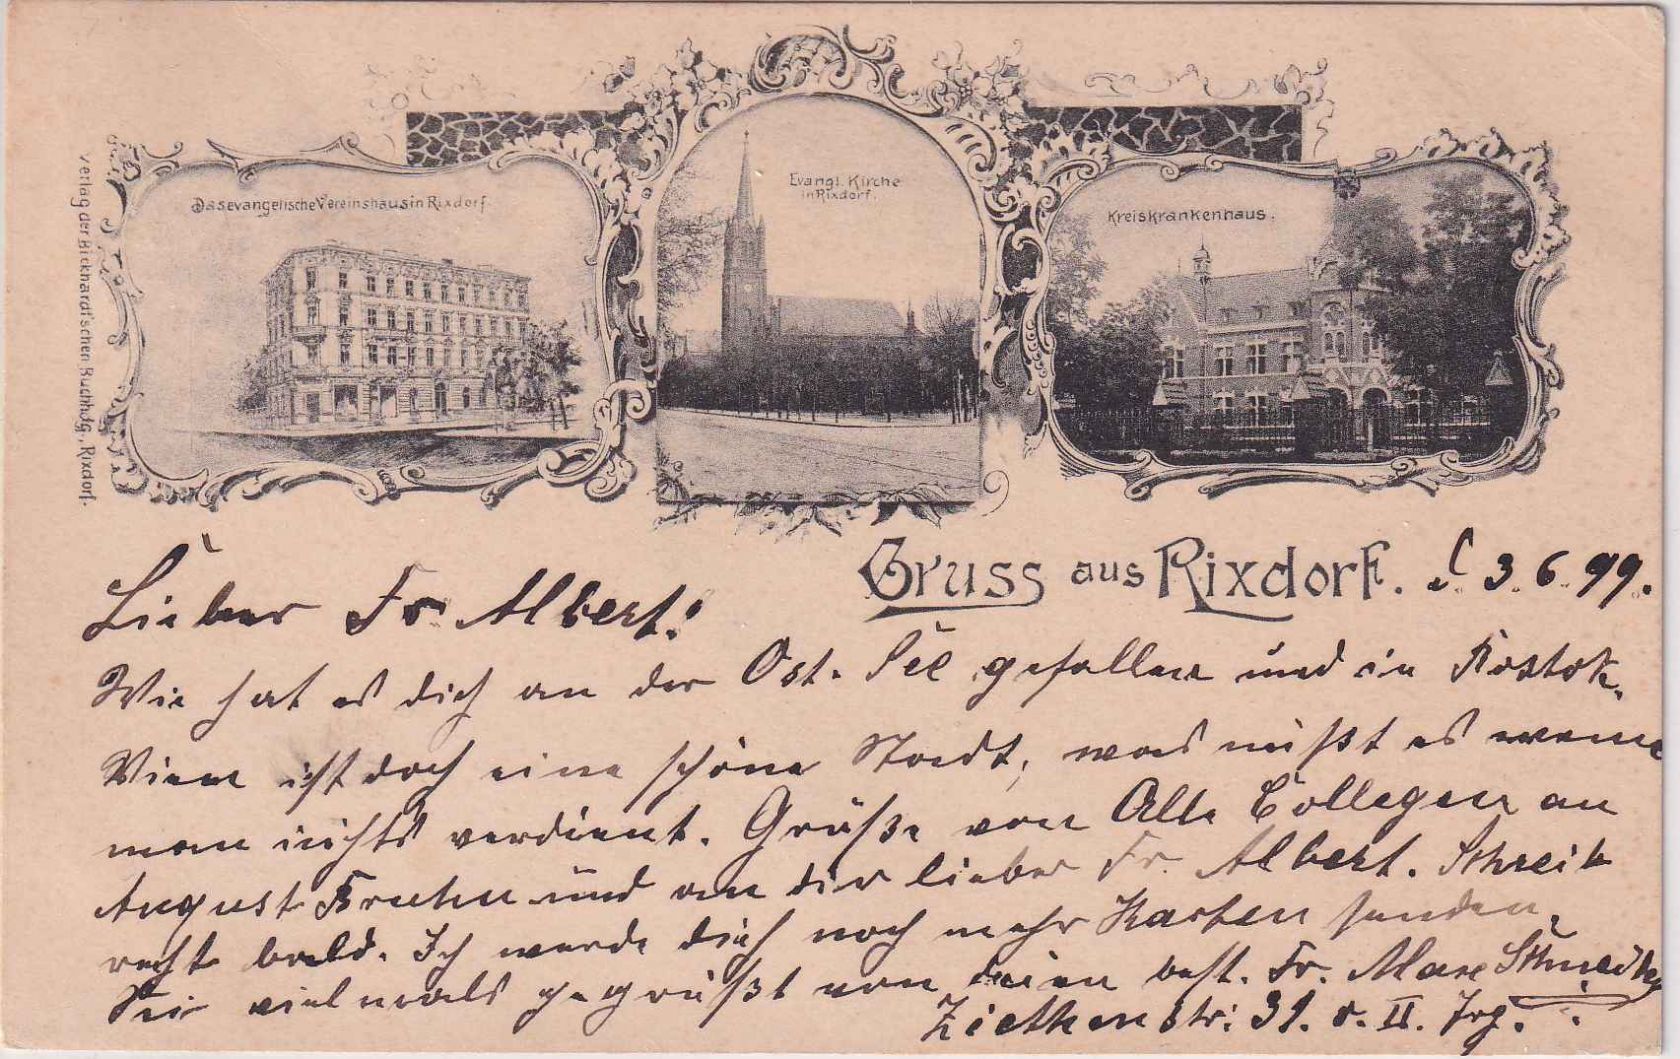 Das evangelische Vereinshaus in Rixdorf.
Evangl. Kirche
in Rixdorf.
Kreiskrankenhaus.
Verlag der Bickhardt'schen Buchhdlg., Rixdorf.
Gruss aus Rixdorf. d. 3. 6. 99.
Lieber Fr. Albert!
Wie hat es dich an der Ost. See gefallen und in Rostok.
ist doch eine schöne Stadt, was nüßt es wenn
man nichts verdient. Grüße von Alle Collegen an
August Bruhn und an dir lieber Fr. Albert. Schreib
recht bald. Ich werde dich noch mehr Karten senden.
Sei vielmals gegrüßt von dein best. Fr. Max
Ziethenstr: 31. v. II.